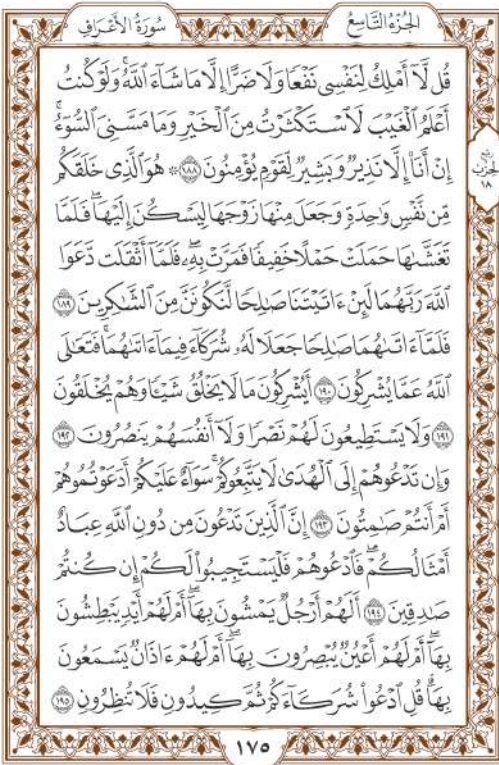 الجُزْءُ التَّاسِعُ
سُورَةُ الأَعْرَافِ
قُل لَّآ أَمْلِكُ لِنَفْسِى نَفْعًا وَلَا ضَرًّا إِلَّا مَا شَآءَ ٱللَّهُۚ وَلَوْ كُنتُ
أَعْلَمُ ٱلْغَيْبَ لَٱسْتَكْثَرْتُ مِنَ ٱلْخَيْرِ وَمَا مَسَّنِىَ ٱلسُّوٓءُۚ
إِنْ أَنَا۠ إِلَّا نَذِيرٌ وَبَشِيرٌ لِّقَوْمٍ يُؤْمِنُونَ ١٨٨ ۞ هُوَ ٱلَّذِى خَلَقَكُم
مِّن نَّفْسٍ وَٰحِدَةٍ وَجَعَلَ مِنْهَا زَوْجَهَا لِيَسْكُنَ إِلَيْهَاۖ فَلَمَّا
تَغَشَّىٰهَا حَمَلَتْ حَمْلًا خَفِيفًا فَمَرَّتْ بِهِۦۖ فَلَمَّآ أَثْقَلَت دَّعَوَا
ٱللَّهَ رَبَّهُمَا لَئِنْ ءَاتَيْتَنَا صَٰلِحًا لَّنَكُونَنَّ مِنَ ٱلشَّٰكِرِينَ ١٨٩
فَلَمَّآ ءَاتَىٰهُمَا صَٰلِحًا جَعَلَا لَهُۥ شُرَكَآءَ فِيمَآ ءَاتَىٰهُمَاۚ فَتَعَٰلَى
ٱللَّهُ عَمَّا يُشْرِكُونَ ١٩٠ أَيُشْرِكُونَ مَا لَا يَخْلُقُ شَيْـًٔا وَهُمْ يُخْلَقُونَ
١٩١ وَلَا يَسْتَطِيعُونَ لَهُمْ نَصْرًا وَلَآ أَنفُسَهُمْ يَنصُرُونَ ١٩٢
وَإِن تَدْعُوهُمْ إِلَى ٱلْهُدَىٰ لَا يَتَّبِعُوكُمْۚ سَوَآءٌ عَلَيْكُمْ أَدَعَوْتُمُوهُمْ
أَمْ أَنتُمْ صَٰمِتُونَ ١٩٣ إِنَّ ٱلَّذِينَ تَدْعُونَ مِن دُونِ ٱللَّهِ عِبَادٌ
أَمْثَالُكُمْۖ فَٱدْعُوهُمْ فَلْيَسْتَجِيبُوا۟ لَكُمْ إِن كُنتُمْ
صَٰدِقِينَ ١٩٤ أَلَهُمْ أَرْجُلٌ يَمْشُونَ بِهَآۖ أَمْ لَهُمْ أَيْدٍ يَبْطِشُونَ
بِهَآۖ أَمْ لَهُمْ أَعْيُنٌ يُبْصِرُونَ بِهَآۖ أَمْ لَهُمْ ءَاذَانٌ يَسْمَعُونَ
بِهَاۗ قُلِ ٱدْعُوا۟ شُرَكَآءَكُمْ ثُمَّ كِيدُونِ فَلَا تُنظِرُونِ ١٩٥
رُبْعُ
الحِزْبِ
١٨
١٧٥